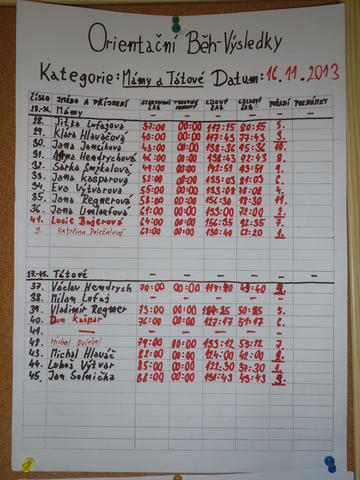 Orientační Běh-Výsledky
Kategorie: Mámy a Tátové Datum: 16.11.2013
ČÍSLO JMÉNO A PŘÍJMENÍ STARTOVNÍ ČAS TRESTNÉ MINUTY CÍLOVÝ ČAS CELKOVÝ ČAS POŘADÍ POZNÁMKY
28.-36. Mámy
28. Jitka Lofajová 37:00 00:00 117:15 80:15 5.
29. Klára Hlaváčová 40:00 00:00 117:43 77:43 3.
30. Jana Jančíková 43:00 00:00 138:36 95:36 10.
31. Hendrychová 46:00 00:00 138:43 92:43 8.
32. Šárka Smejkalová 00:00 142:51
33. Jana Kašparová 52:00 00:00
34. Eva Výtvarová 55:00 00:00 133:08 78:08 4.
35. Jana Regnerová 58:00 00:00 156:30 98:30 11.
36. Jana Umlaufová 61:00 00:00 133:00 72:00 2.
41. Lucie Bajerová 64:00 00:00 156:35 92:35 7.
9. Kateřina Doležalová 67:00 00:00 130:40 1.
37.-45. Tátové
37. Václav Hendrych 70:00 00:00 119:49 49:49
38. Milan Lofaj – – – – –
39. Vladimír Regner 00:00 50:25 5.
40. Dan Kašpar 76:00 00:00 127:17 51:17 6.
41. –
42. Michal Doležal 79:00 00:00 7.
43. Michal Hlaváč 82:00 00:00 124:00 42:00 2.
44. Luboš Výtvar 85:00 00:00 122:30 37:30 1.
45. Jan Solnička 88:00 00:00 131:43 43:43 3.